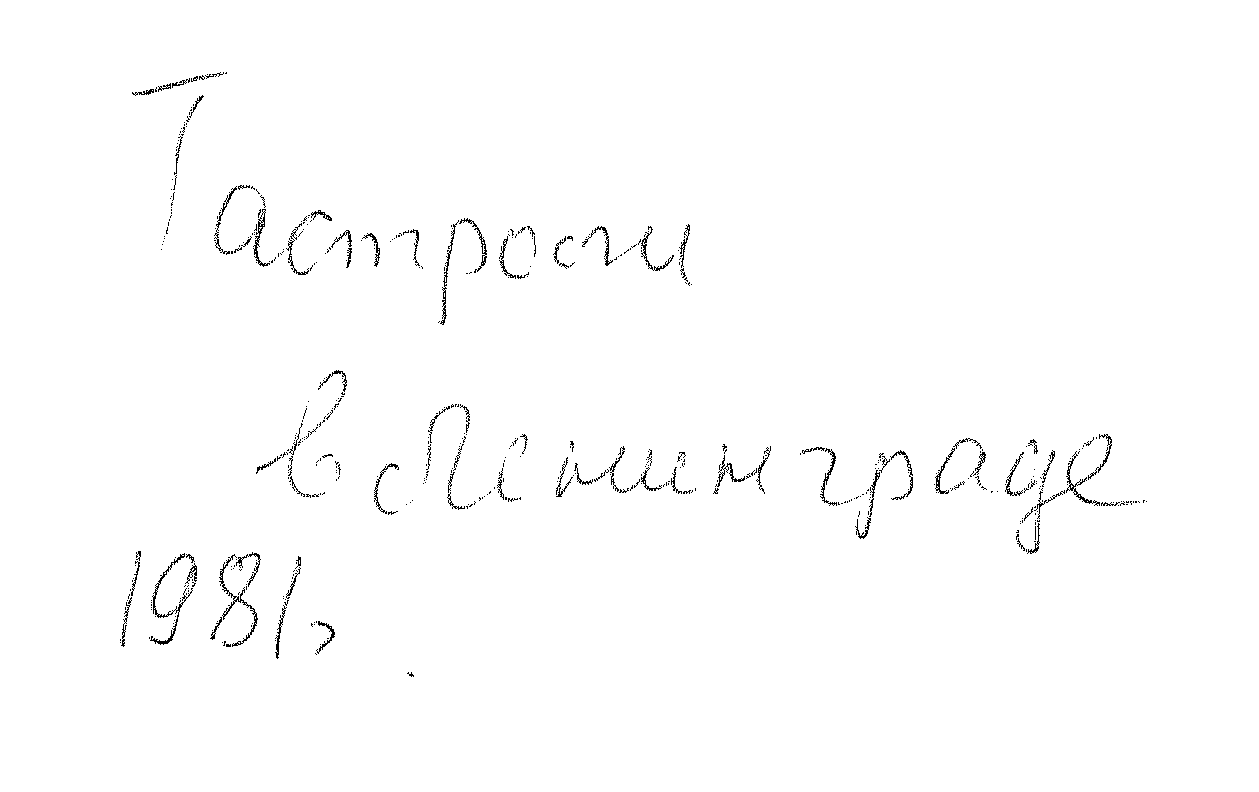 Гастроли
в Ленинграде
1981 г.